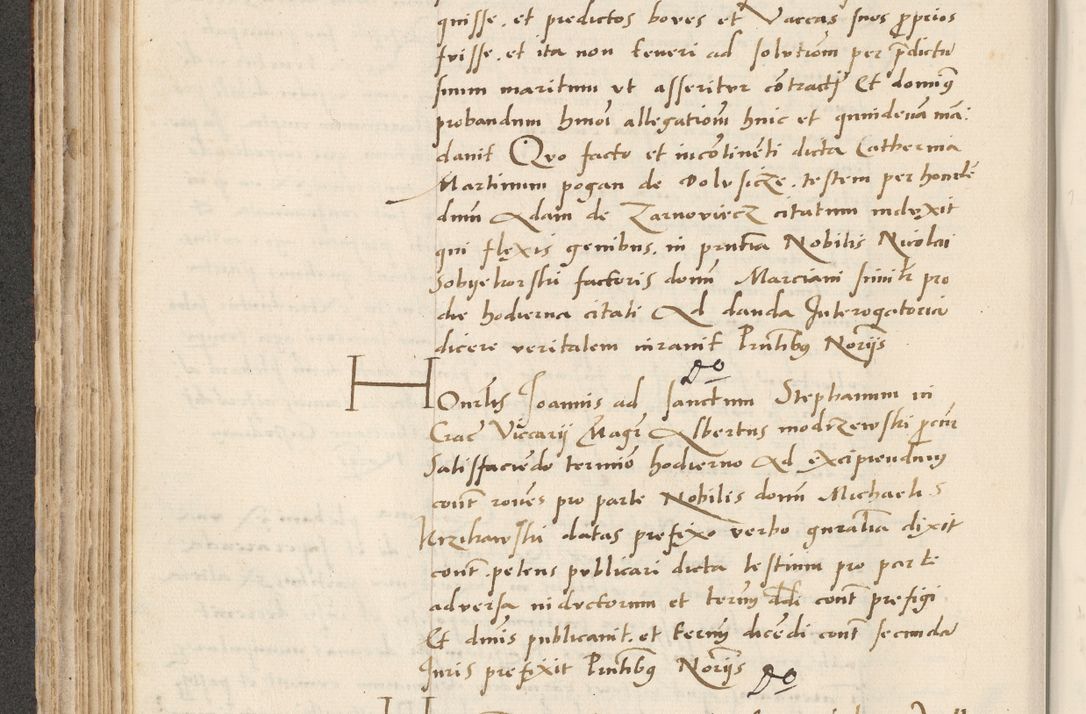 quisse, et predictos boves et Vaccas suos proprios
fuisse, et ita non teneri ad solutiom per pdictu
suum maritum ut asseritur contracti Et doming
probandum hmoi allegatiom huic et quindenam man:
davit Quo facto et incontinenti dicta Catherina
Martinum pogan de Dolusicze, testem per honorle
dnm Adam de Zarnoviecz citatum induxit
qui flexis genibus, in pntia Nobilis Nicolai
Sobyekorski factoris domi Marciani simili pro
die hodierna citati Ad danda Interogatoria
dicere veritatem iuravit Pntibg Noriis
Do
Honrlis Joannis ad sanctum Stephanum in
Crac Viccarij Magr Albertus modrzewski pcur
Satisfaciendo termio hodierno Ad excipiendum
cont roues pro parte Nobilis domi Michaelis
Krzikawski datas prefixo verbo gnralia dixit
cont, petens publicari dicta testium pro parte
adversa inductorum et termi ddi cont prefigi
Et dnus publicavit, et termi dicedi cont secunda
Juris prefixit Pntibg Noriis
Do